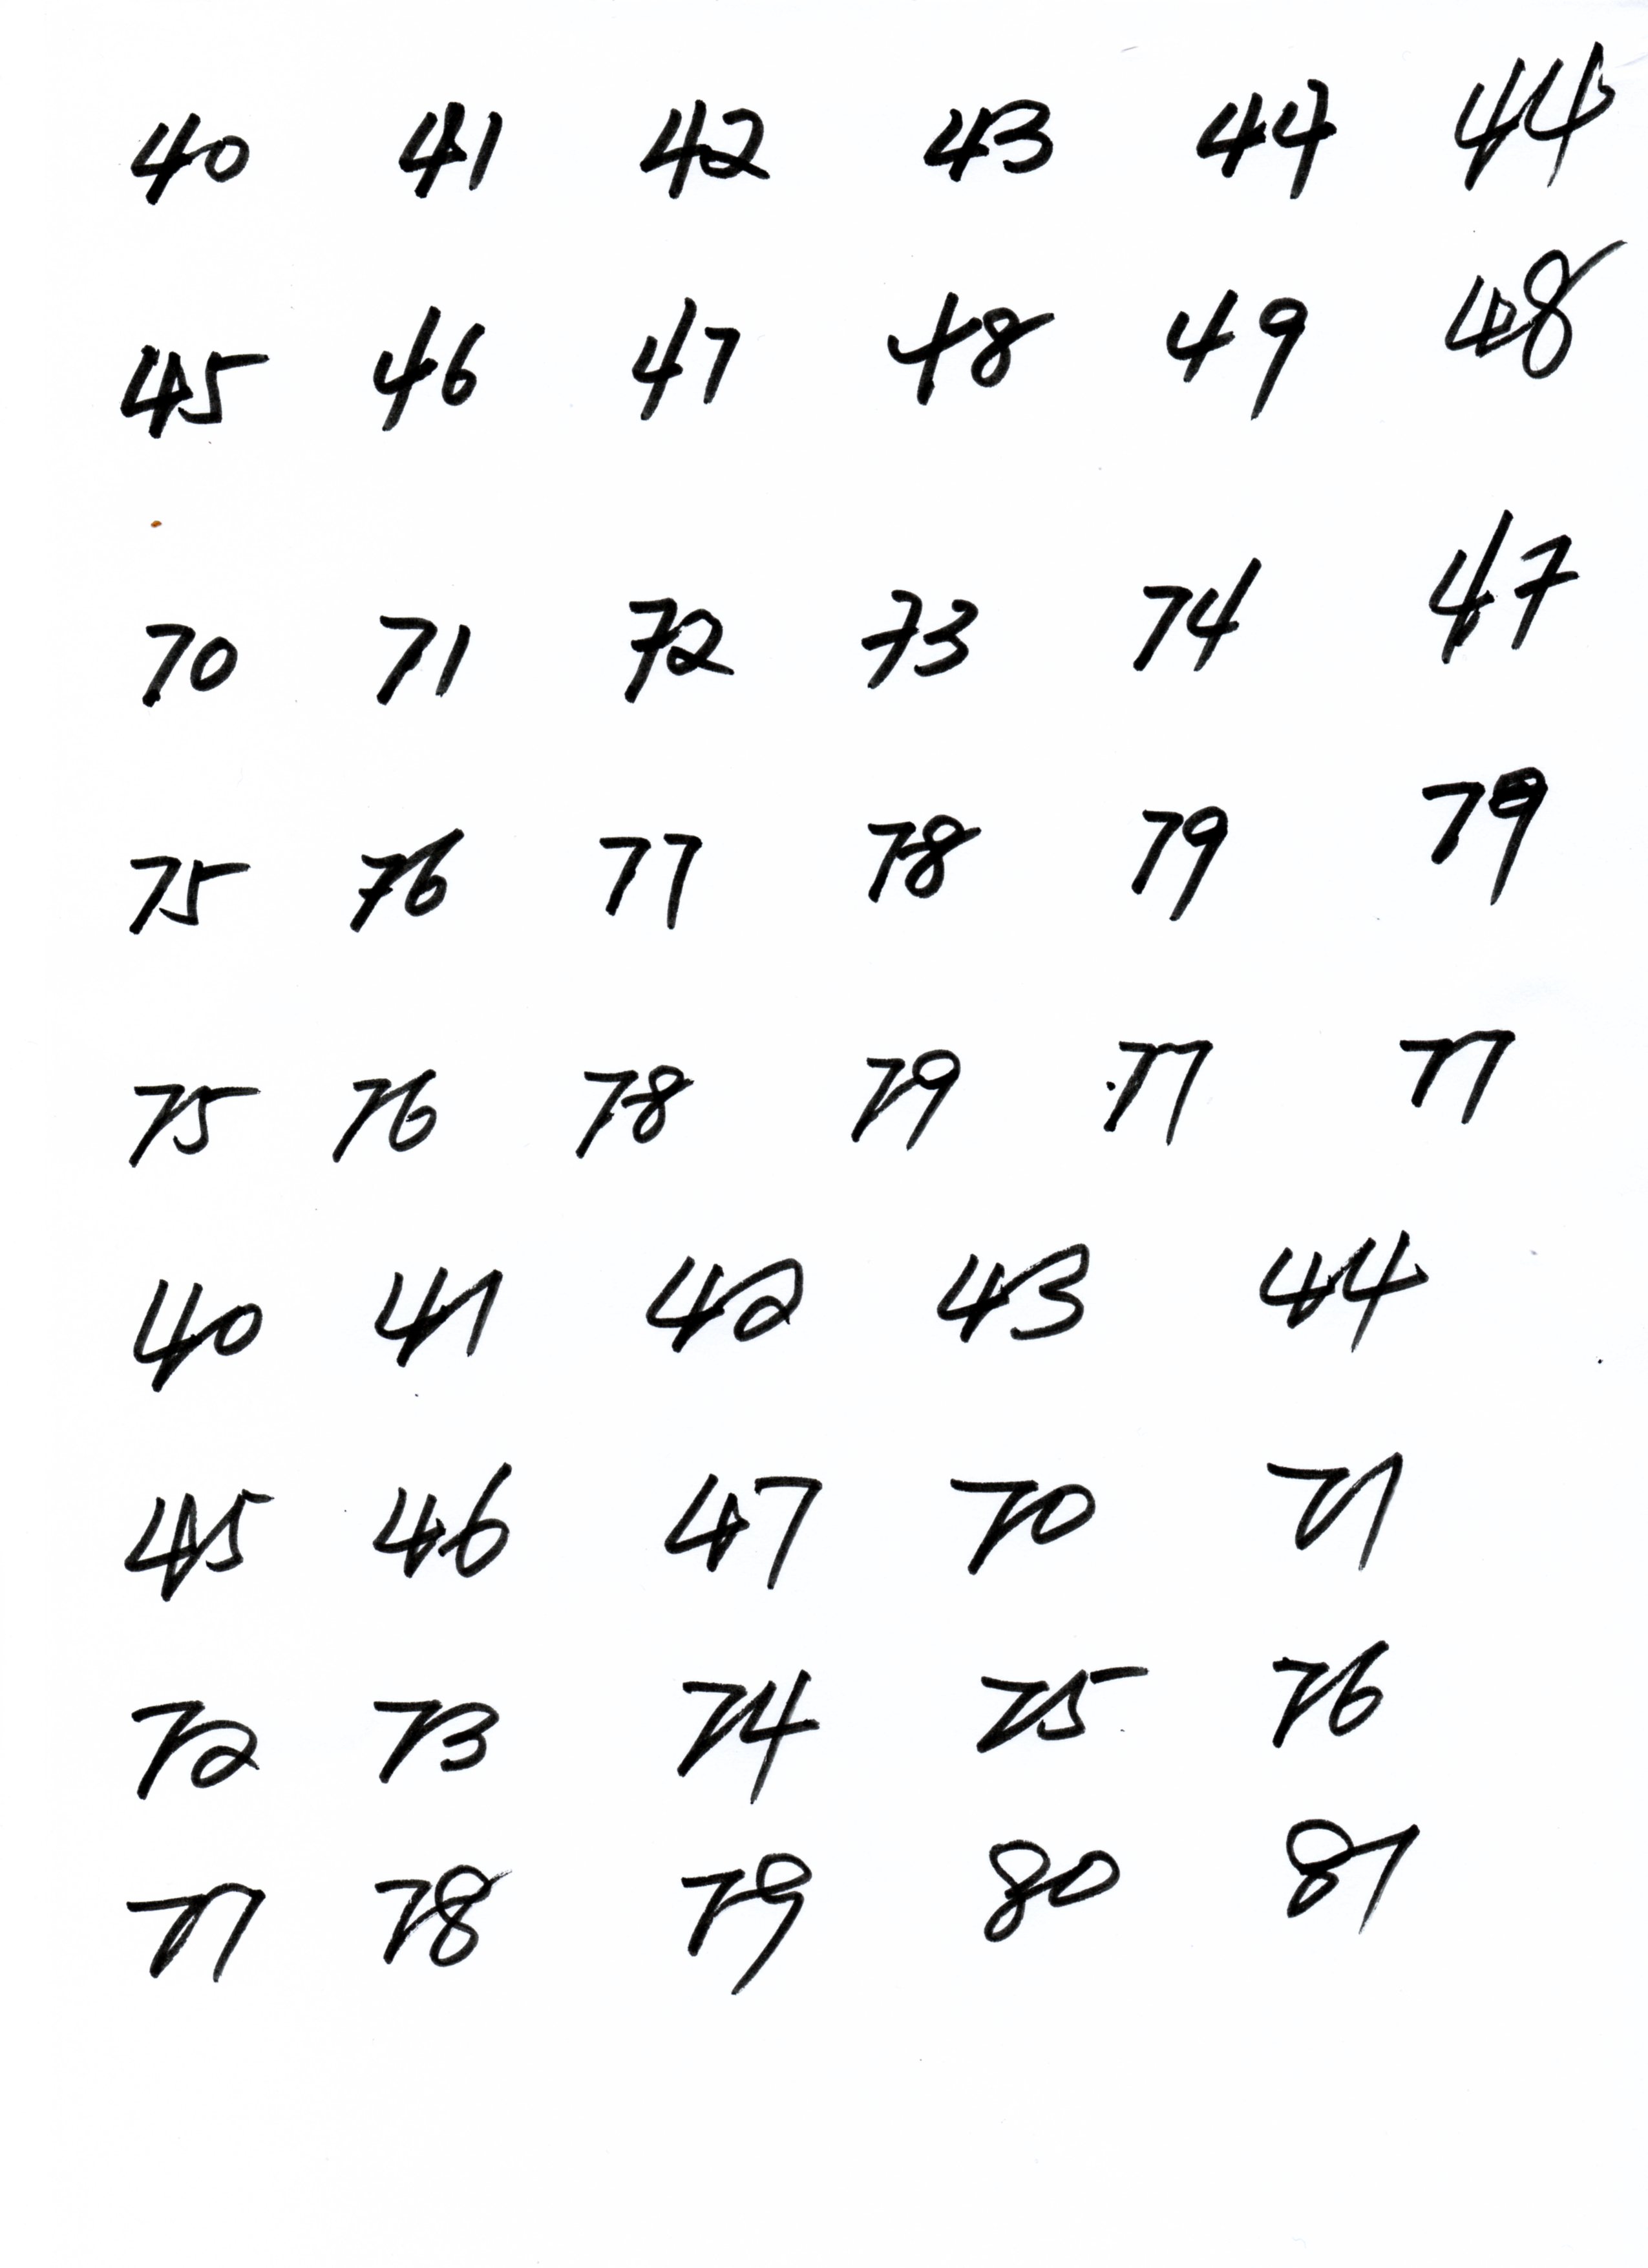 40 41 42 43 44 44
45 46 47 48 49 48
70 71 72 73 74 47
75 76 77 78 79 79
75 76 78 79 77 77
40 41 42 43 44
45 46 47 70 71
72 73 74 75 76
77 78 79 80 81